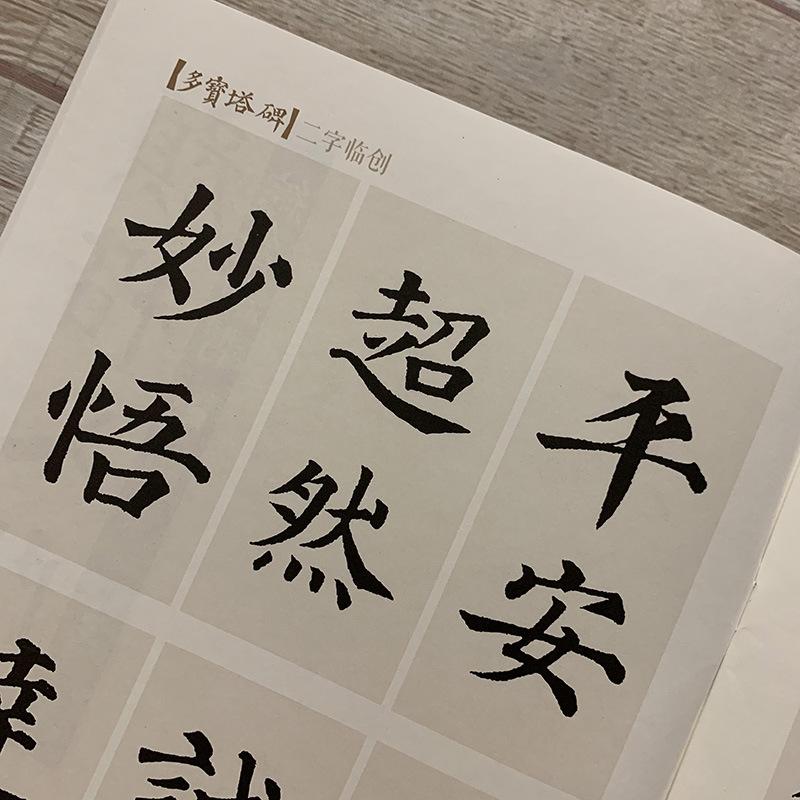 【多寶塔碑】二字临创
平安
超然
妙悟